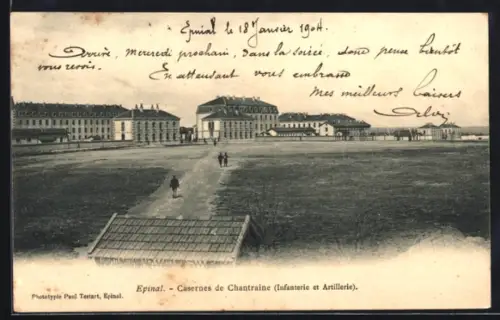 Epinal le 18 Janvier 1904
Mercredi prochain, dans la soirée, donc pense bientôt
vous revoir.
En attendant vous embrasse
Mes meilleurs baisers
Epinal. - Casernes de Chantraine (Infanterie et Artillerie).
Phototypie Paul Testart, Epinal.